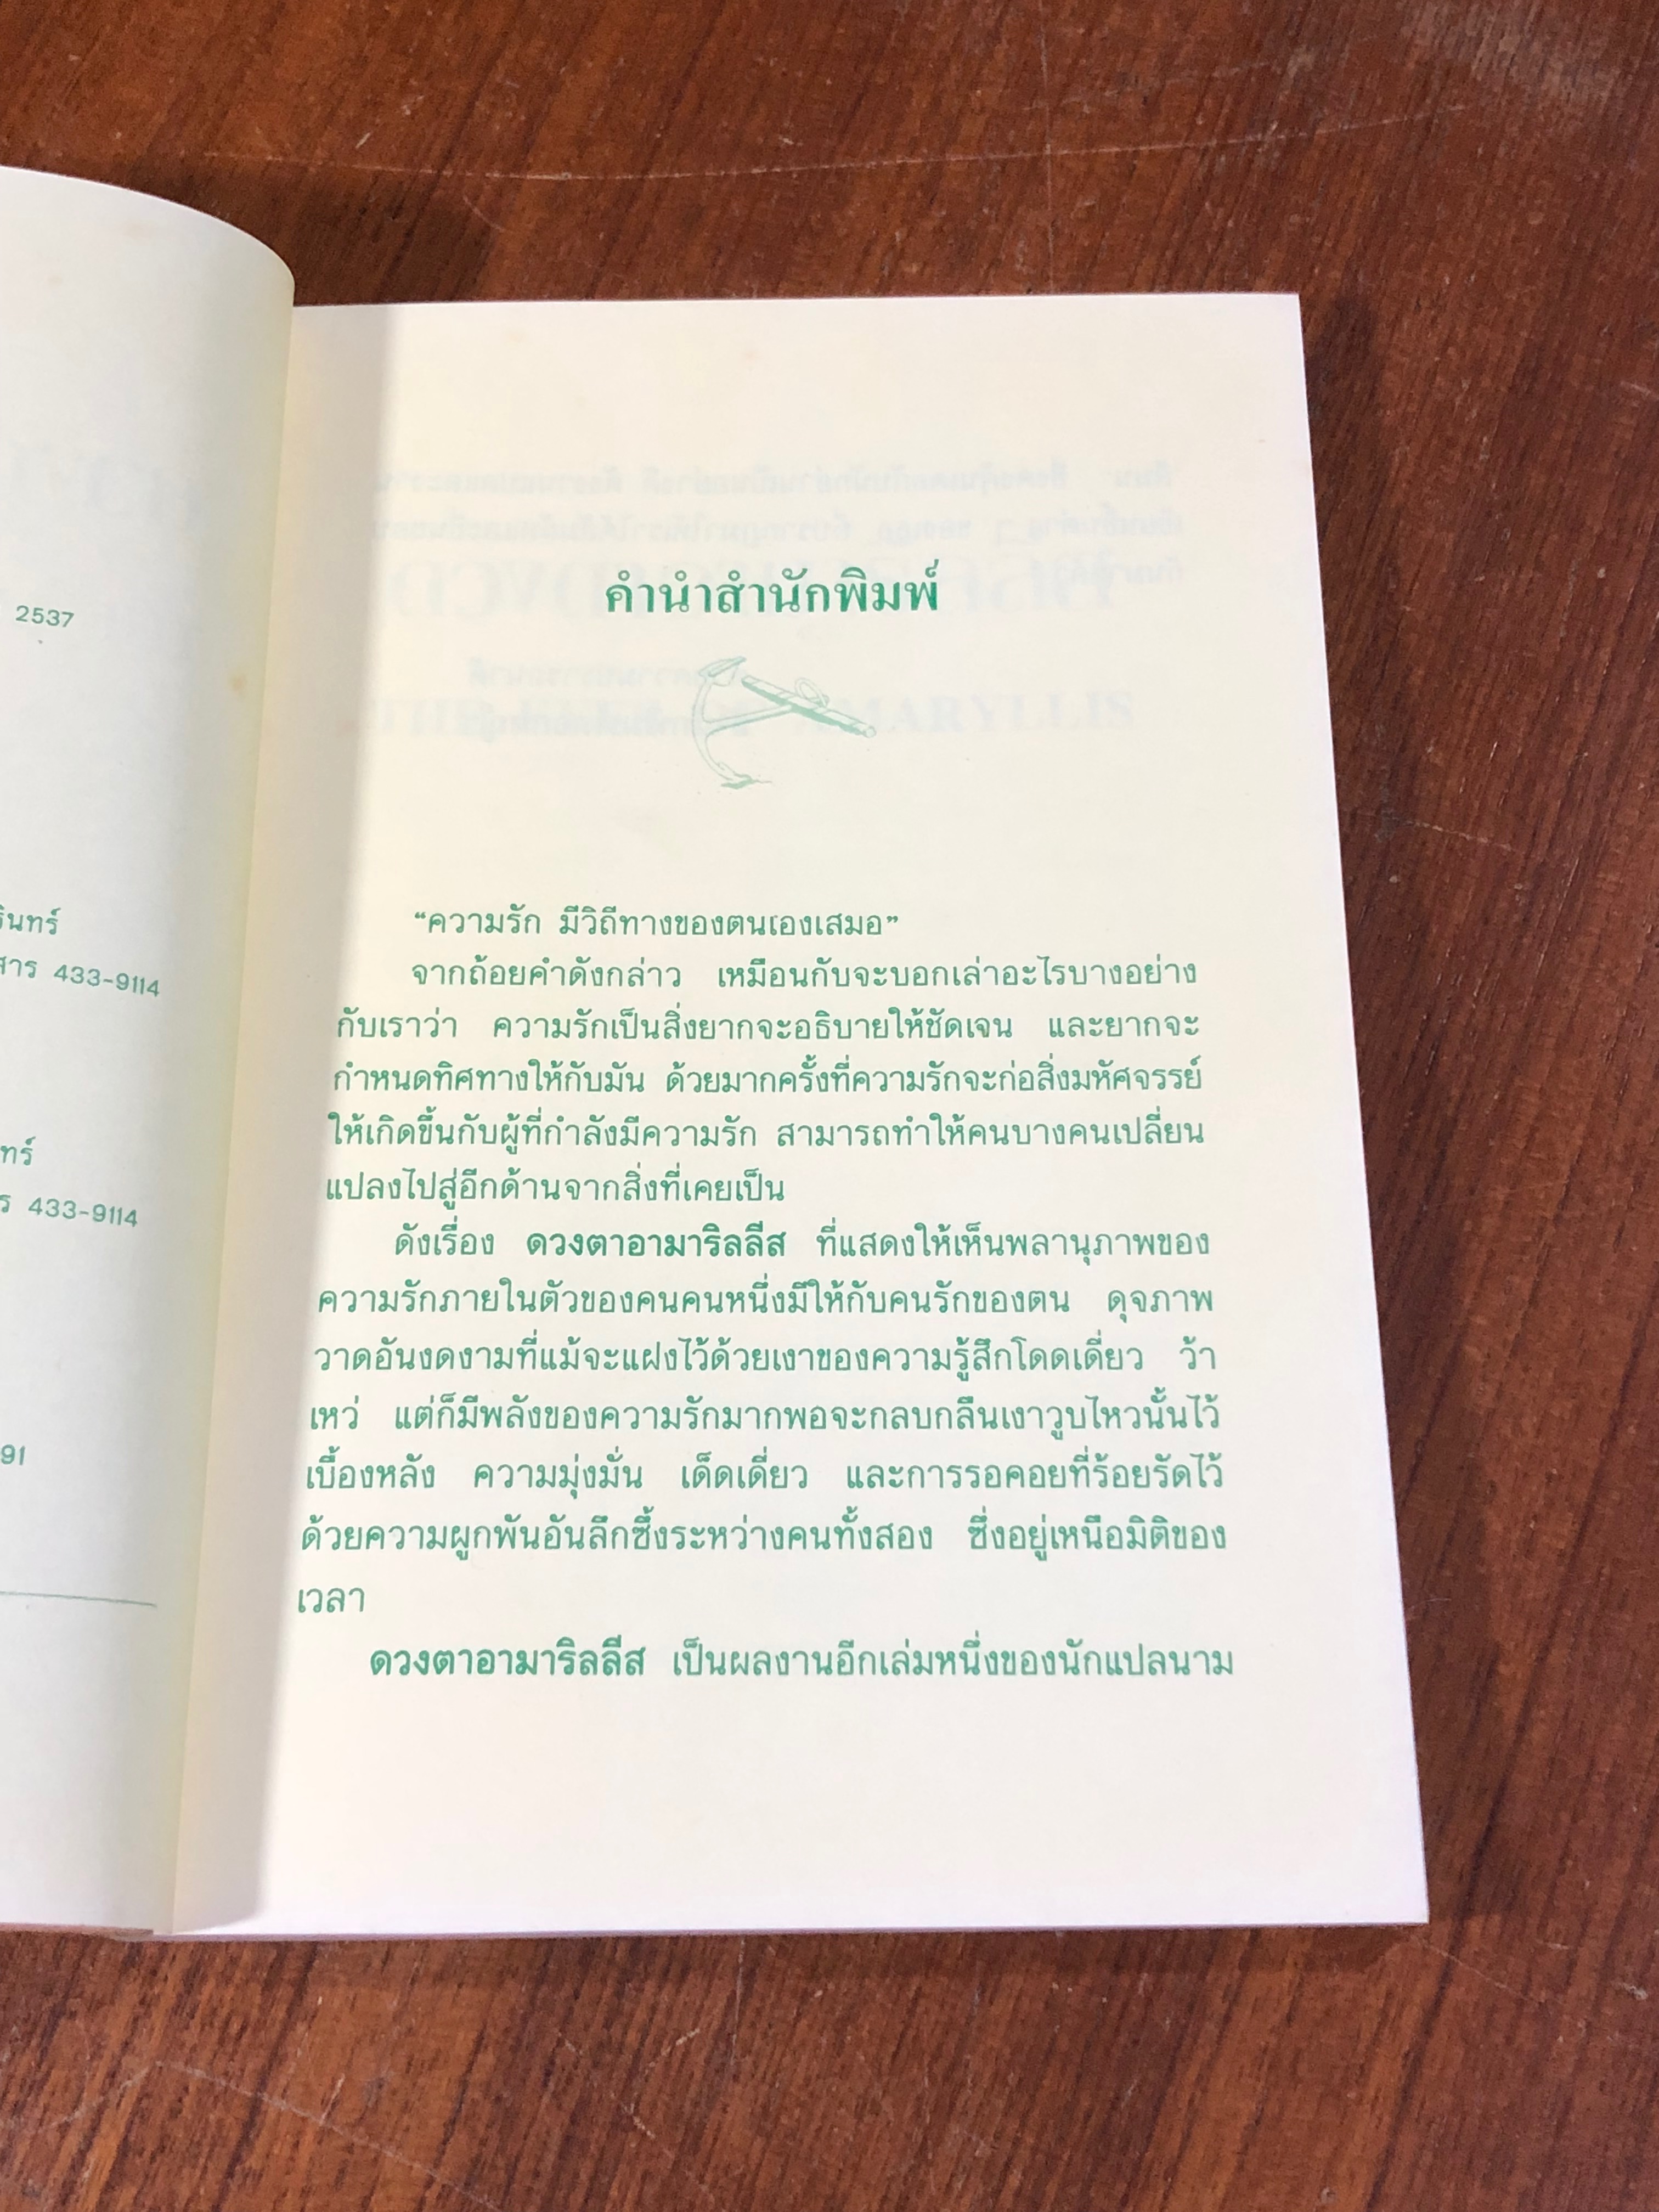 2537
433-9114
433-9114
91
คำนำสำนักพิมพ์
AMARYLLIS
“ความรัก มีวิถีทางของตนเองเสมอ”
จากถ้อยคำดังกล่าว เหมือนกับจะบอกเล่าอะไรบางอย่าง
กับเราว่า ความรักเป็นสิ่งยากจะอธิบายให้ชัดเจน และยากจะ
กำหนดทิศทางให้กับมัน ด้วยมากครั้งที่ความรักจะก่อสิ่งมหัศจรรย์
ให้เกิดขึ้นกับผู้ที่กำลังมีความรัก สามารถทำให้คนบางคนเปลี่ยน
แปลงไปสู่อีกด้านจากสิ่งที่เคยเป็น
ดังเรื่อง ดวงตาอามาริลลีส ที่แสดงให้เห็นพลานุภาพของ
ความรักภายในตัวของคนคนหนึ่งมีให้กับคนรักของตน ดุจภาพ
วาดอันงดงามที่แม้จะแฝงไว้ด้วยเงาของความรู้สึกโดดเดี่ยว ว้า
เหว่ แต่ก็มีพลังของความรักมากพอจะกลบกลืนเงาวูบไหวนั้นไว้
เบื้องหลัง ความมุ่งมั่น เด็ดเดี่ยว และการรอคอยที่ร้อยรัดไว้
ด้วยความผูกพันอันลึกซึ้งระหว่างคนทั้งสอง ซึ่งอยู่เหนือมิติของ
เวลา
ดวงตาอามาริลลีส เป็นผลงานอีกเล่มหนึ่งของนักแปลนาม